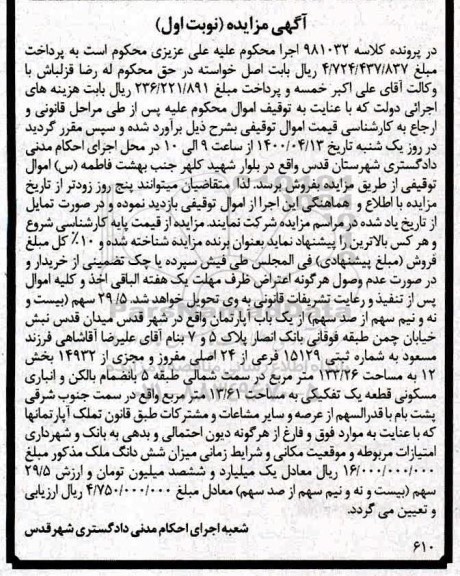 آگهی مزایده (نوبت اول)
در پرونده کلاسه ۹۸۱۰۳۲ اجرا محکوم علیه علی عزیزی محکوم است به پرداخت
مبلغ ۴/۷۲۴/۴۳۷/۸۳۷ ریال بابت اصل خواسته در حق محکوم له رضا قزلباش با
وکالت آقای علی اکبر خمسه و پرداخت مبلغ ۲۳۶/۲۲۱/۸۹۱ ریال بابت هزینه های
اجرائی دولت که با عنایت به توقیف اموال محکوم علیه پس از طی مراحل قانونی و
ارجاع به کارشناسی قیمت اموال توقیفی بشرح ذیل برآورد شده و سپس مقرر گردید
در روز یک شنبه تاریخ ۱۴۰۰/۰۴/۱۳ از ساعت ۹ الی ۱۰ در محل اجرای احکام مدنی
دادگستری شهرستان قدس واقع در بلوار شهید کلهر جنب بهشت فاطمه (س) اموال
توقیفی از طریق مزایده بفروش برسد. لذا متقاضیان میتوانند پنج روز زودتر از تاریخ
مزایده با اطلاع و هماهنگی این اجرا از اموال توقیفی بازدید نموده و در صورت تمایل
از تاریخ یاد شده در مراسم مزایده شرکت نمایند. مزایده از قیمت پایه کارشناسی شروع
و هر کس بالاترین را پیشنهاد نماید بعنوان برنده مزایده شناخته شده و ۱۰٪ کل مبلغ
فروش (مبلغ پیشنهادی) فی المجلس طی فیش سپرده یا چک تضمینی از خریدار و
در صورت عدم وصول هرگونه اعتراض ظرف مهلت یک هفته الباقی اخذ و کلیه اموال
پس از تنفیذ و رعایت تشریفات قانونی به وی تحویل خواهد شد. ۲۹/۵ سهم (بیست و
نه و نیم سهم از صد سهم) از یک باب آپارتمان واقع در شهر قدس میدان قدس نبش
خیابان چمن طبقه فوقانی بانک انصار پلاک ۵ و ۷ بنام آقای علیرضا آقاشاهی فرزند
مسعود به شماره ثبتی ۱۵۱۲۹ فرعی از ۲۴ اصلی مفروز و مجزی از ۱۴۹۳۲ بخش
۱۲ به مساحت ۱۳۳/۲۶ متر مربع در سمت شمالی طبقه ۵ بانضمام بالکن و انباری
مسکونی قطعه یک تفکیکی به مساحت ۱۳/۶۱ متر مربع واقع در سمت جنوب شرقی
پشت بام با قدرالسهم از عرصه و سایر مشاعات و مشترکات طبق قانون تملک آپارتمانها
که با عنایت به موارد فوق و فارغ از هرگونه دیون احتمالی و بدهی به بانک و شهرداری
امتیازات مربوطه و موقعیت مکانی و شرایط زمانی میزان شش دانگ ملک مذکور مبلغ
۱۶/۰۰۰/۰۰۰/۰۰۰ ریال معادل یک میلیارد و ششصد میلیون تومان و ارزش ۲۹/۵
سهم (بیست و نه و نیم سهم از صد سهم) معادل مبلغ ۴/۷۵۰/۰۰۰/۰۰۰ ریال ارزیابی
و تعیین می گردد.
شعبه اجرای احکام مدنی دادگستری شهرقدس
۶۱۰